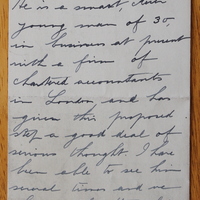 He is a smart, clean
young man of 30.
in business at present
with a firm of
chartered accountants
in London, and has
given this proposed
step a good deal of
serious thought. I have
been able to see him
several times and we